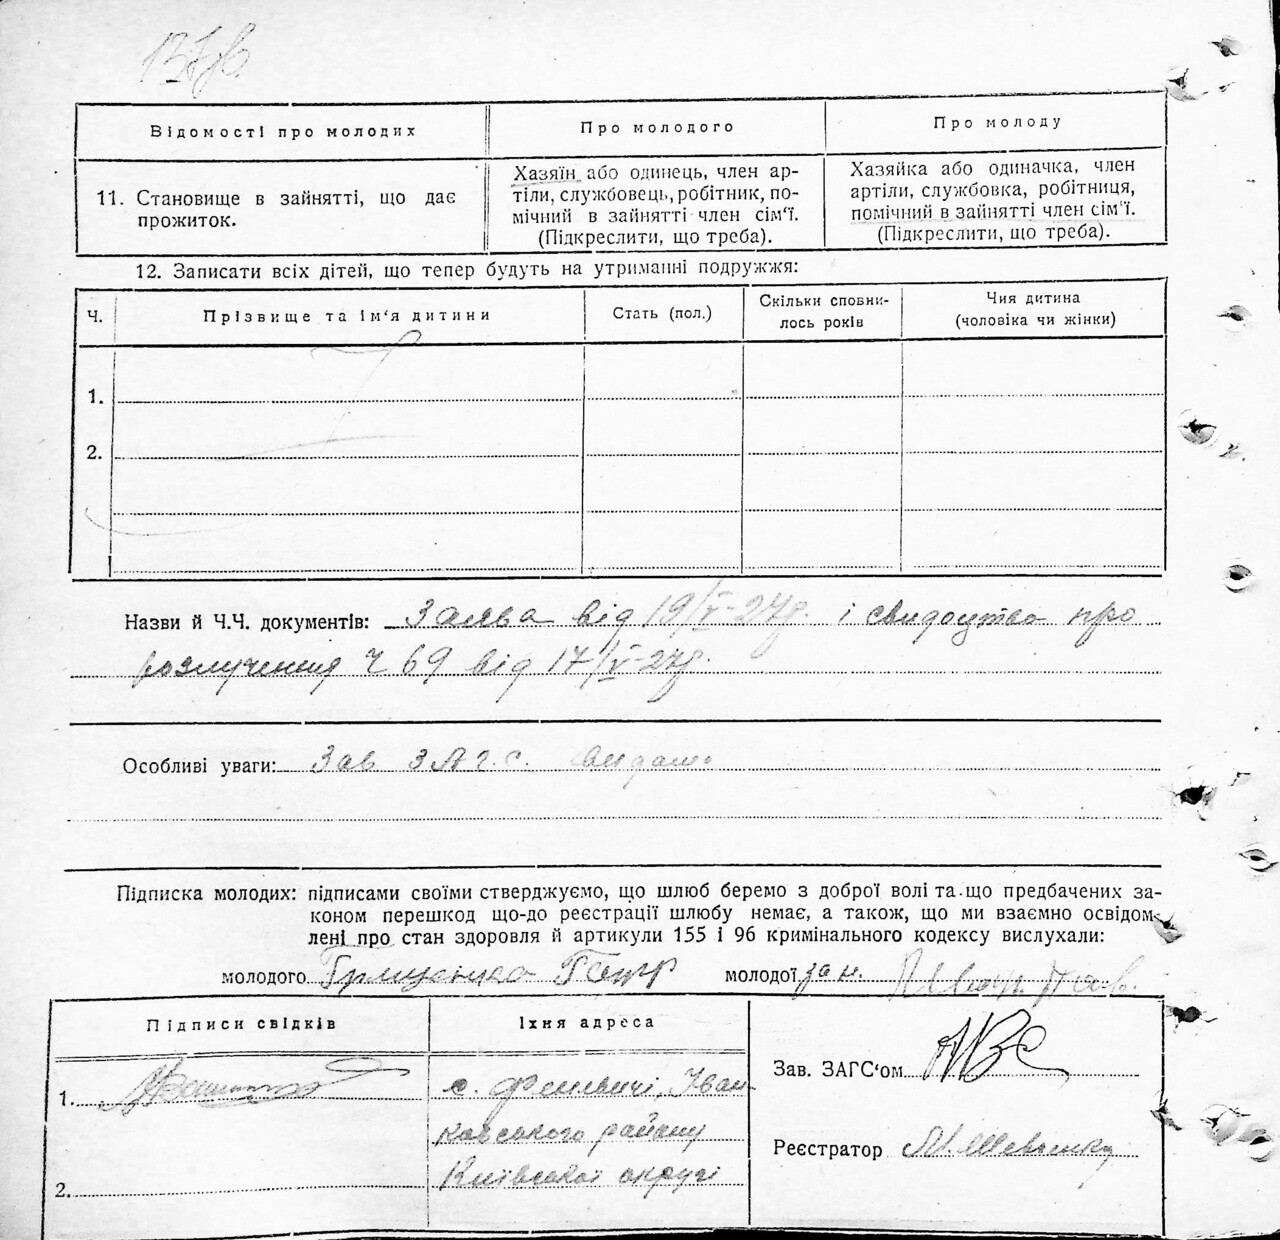 Відомості про молодих
Про молодого
Про молоду
11. Становище в зайнятті, що дає прожиток.
Хазяїн або одинець, член ар-
тіли, службовець, робітник, по-
мічний в зайнятті член сім'ї.
(Підкреслити, що треба).
Хазяйка або одиначка, член
артіли, службовка, робітниця,
помічний в зайнятті член сім'ї.
(Підкреслити, що треба).
12. Записати всіх дітей, що тепер будуть на утриманні подружжя:
Ч.
Прізвище та ім'я дитини
Стать (пол.)
Скільки сповни-
лось років
Чия дитина
(чоловіка чи жінки)
1.
2.
Назви й Ч.Ч. документів: Заява від 19/V-27р. і свидоцтво про
розлучення Ч 69 від 17/V-27р.
Особливі уваги: Зав ЗАГС
Підписка молодих: підписами своїми стверджуємо, що шлюб беремо з доброї волі та що предбачених за-
коном перешкод що-до реєстрації шлюбу немає, а також, що ми взаємно освідом-
лені про стан здоровля й артикули 155 і 96 кримінального кодексу вислухали:
молодого Грищенко Петр молодої за н.
Підписи свідків
Їхня адреса
1.
с. Іван-
ковського району
Київської округи
2.
Зав. ЗАГС'ом
Реєстратор М. Шевченко